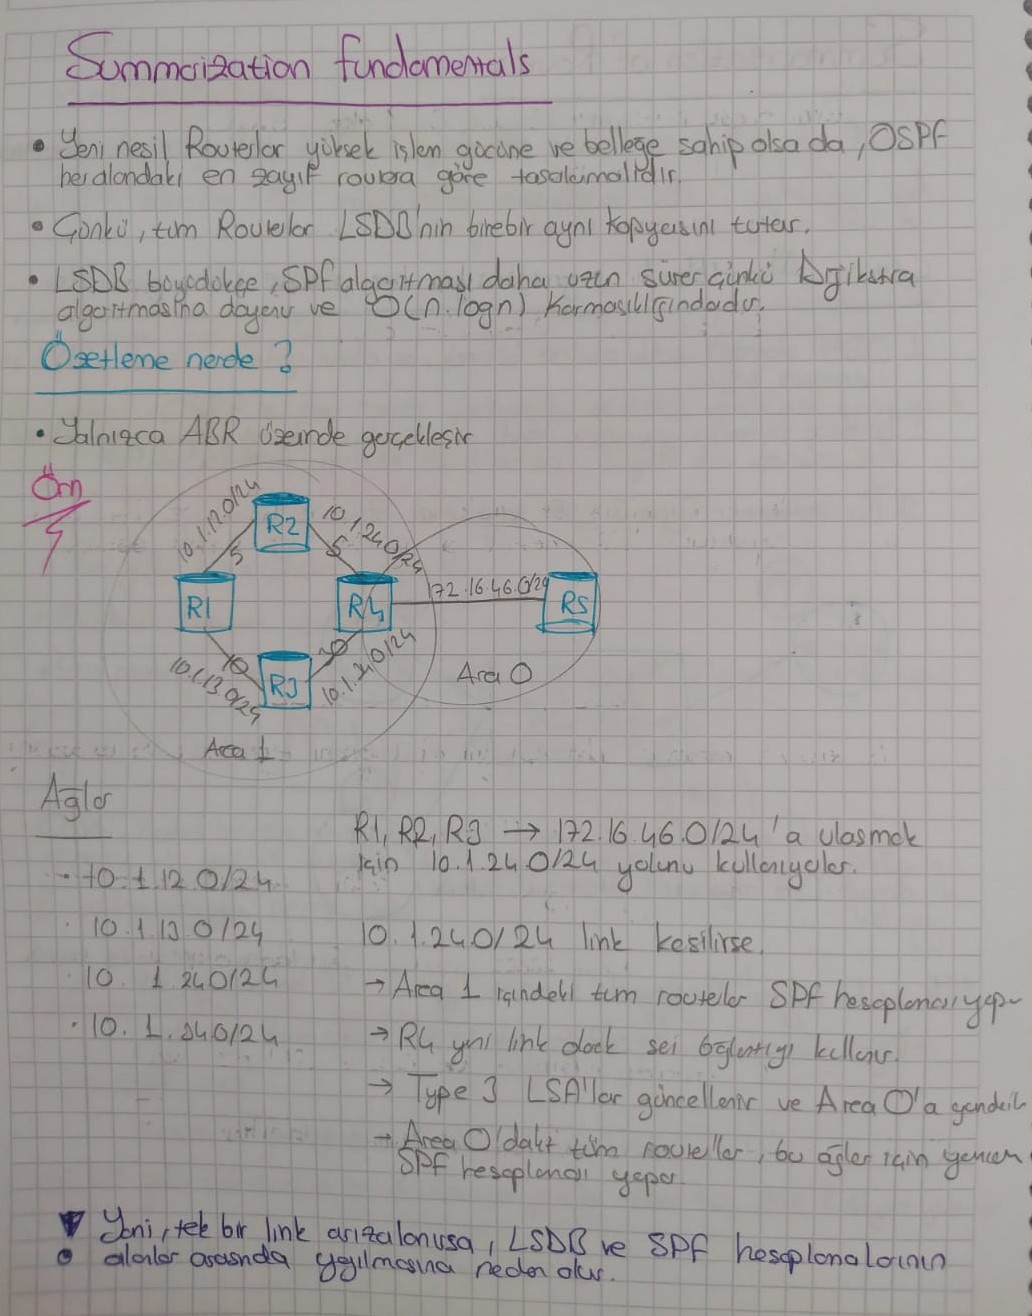 Summarization fundamentals
• Yeni nesil Routerlar yüksek işlem gücüne ve belleğe sahip olsa da, OSPF
her alandaki en zayıf routera göre tasarlanmalıdır.
• Çünkü, tüm Routerlar LSDB'nin birebir aynı kopyasını tutar.
• LSDB büyüdükçe, SPF algoritması daha uzun sürer çünkü Dijikstra
algoritmasına dayanır ve O(n.logn) karmaşıklığındadır.
Özetleme nerde ?
• Yalnızca ABR üzerinde gerçekleşir
Örn
10.1.12.0/24
R2
10.1.24.0/24
5
5
R1
R4
172.16.46.0/24
R5
10
10.1.13.0/24
R3
Area 0
Area 1
Ağlar
R1, R2, R3 → 172.16.46.0/24 'a ulaşmak
için 10.1.24.0/24 yolunu kullanıyorlar.
• 10.1.12.0/24
• 10.1.13.0/24
10.1.24.0/24 link kesilirse.
10.1.24.0/24
→ Area 1 içindeki tüm routerlar SPF hesaplaması yapar
• 10.1.34.0/24
→ R4 yeni link olarak bağlantıyı kullanır.
→ Type 3 LSA'lar güncellenir ve Area 0'a
→ Area 0'daki tüm routerlar, bu ağlar için yeniden
SPF hesaplaması yapar.
▼ Yani, tek bir link arızalanırsa, LSDB ve SPF hesaplamalarının
• alanlar arasında yayılmasına neden olur.